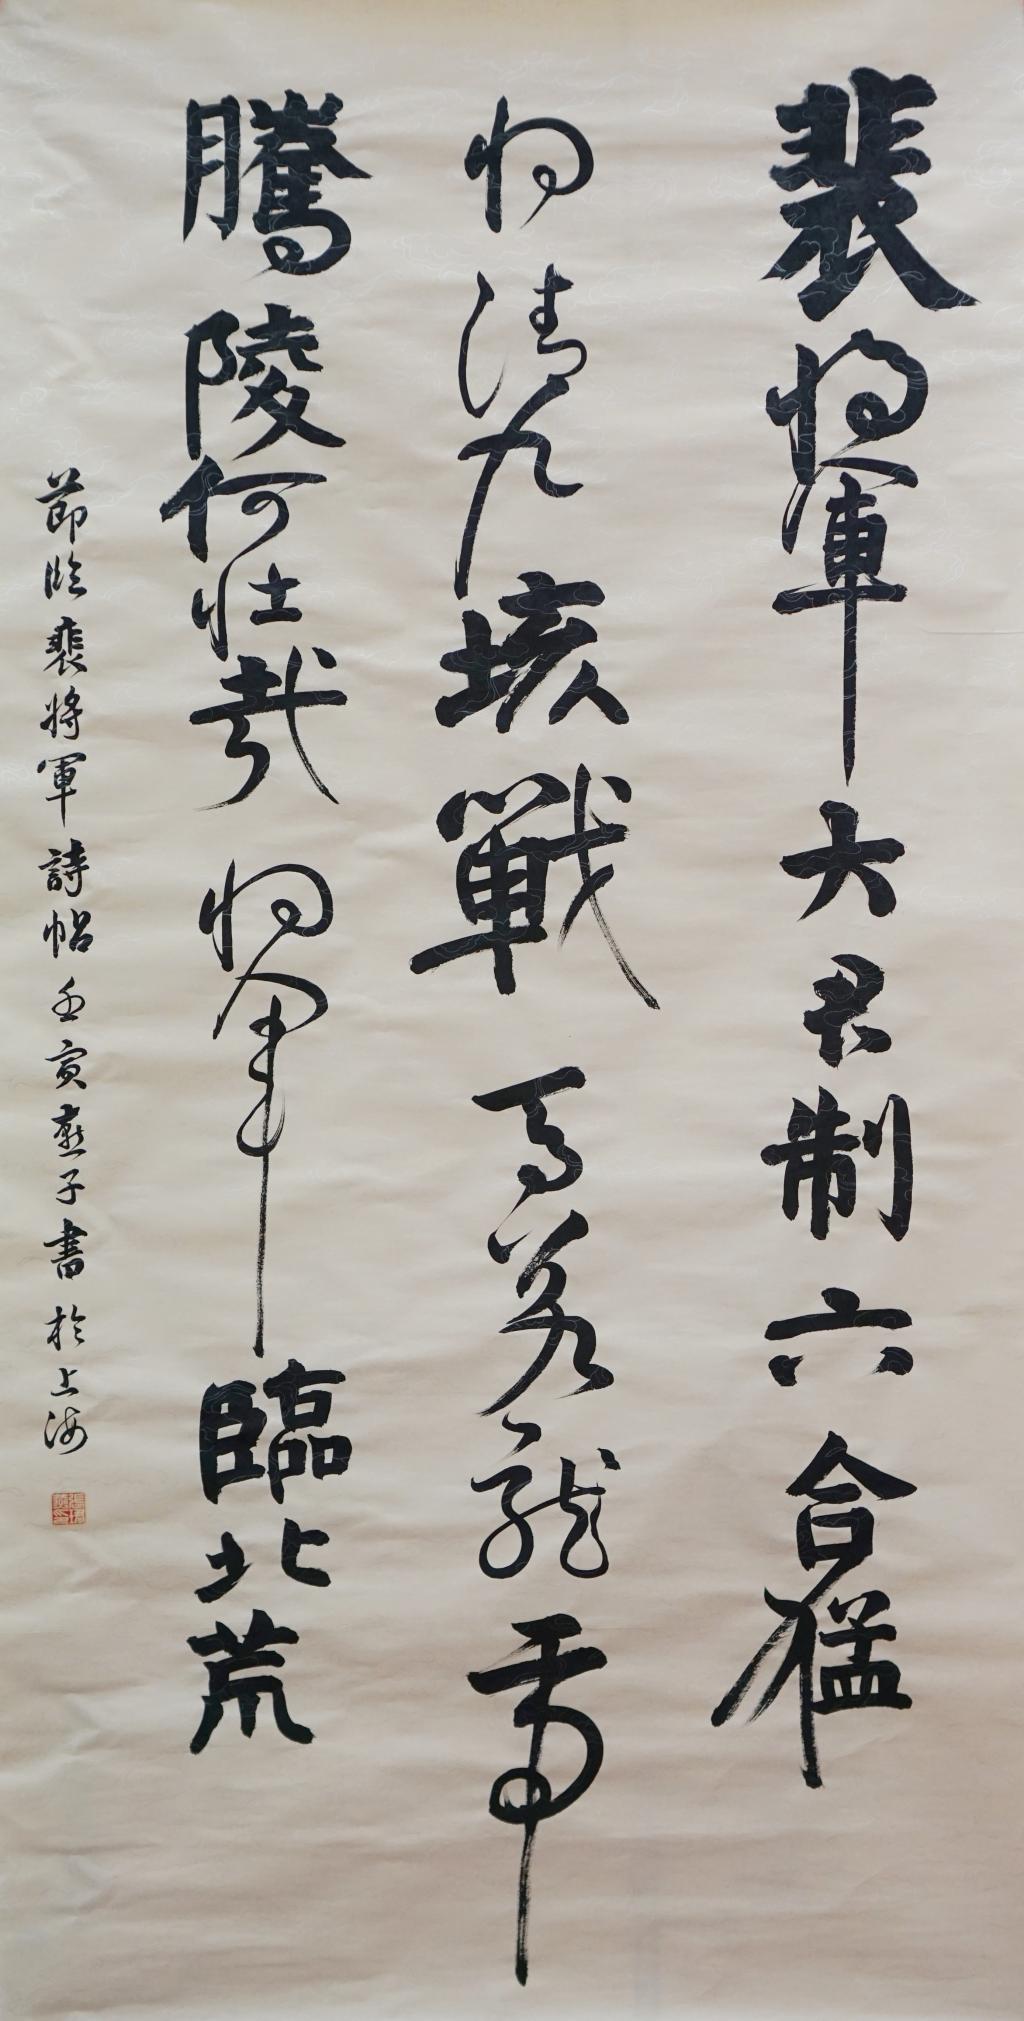 裴将軍大君制六合猛
将清九垓戰馬若龍虎
騰陵何壮哉将軍臨北荒
節临裴将軍詩帖壬寅燕子書於上海